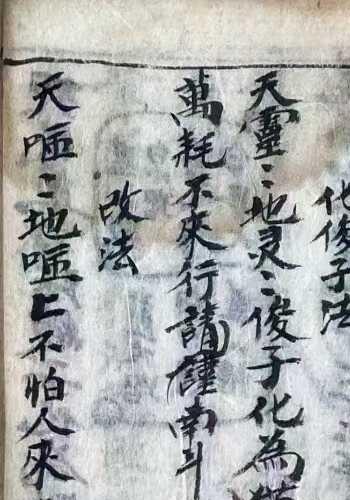 化俊子法
天靈〻地灵〻俊子化為
萬耗不來行請南斗
改法
天哑〻地哑上不怕人來